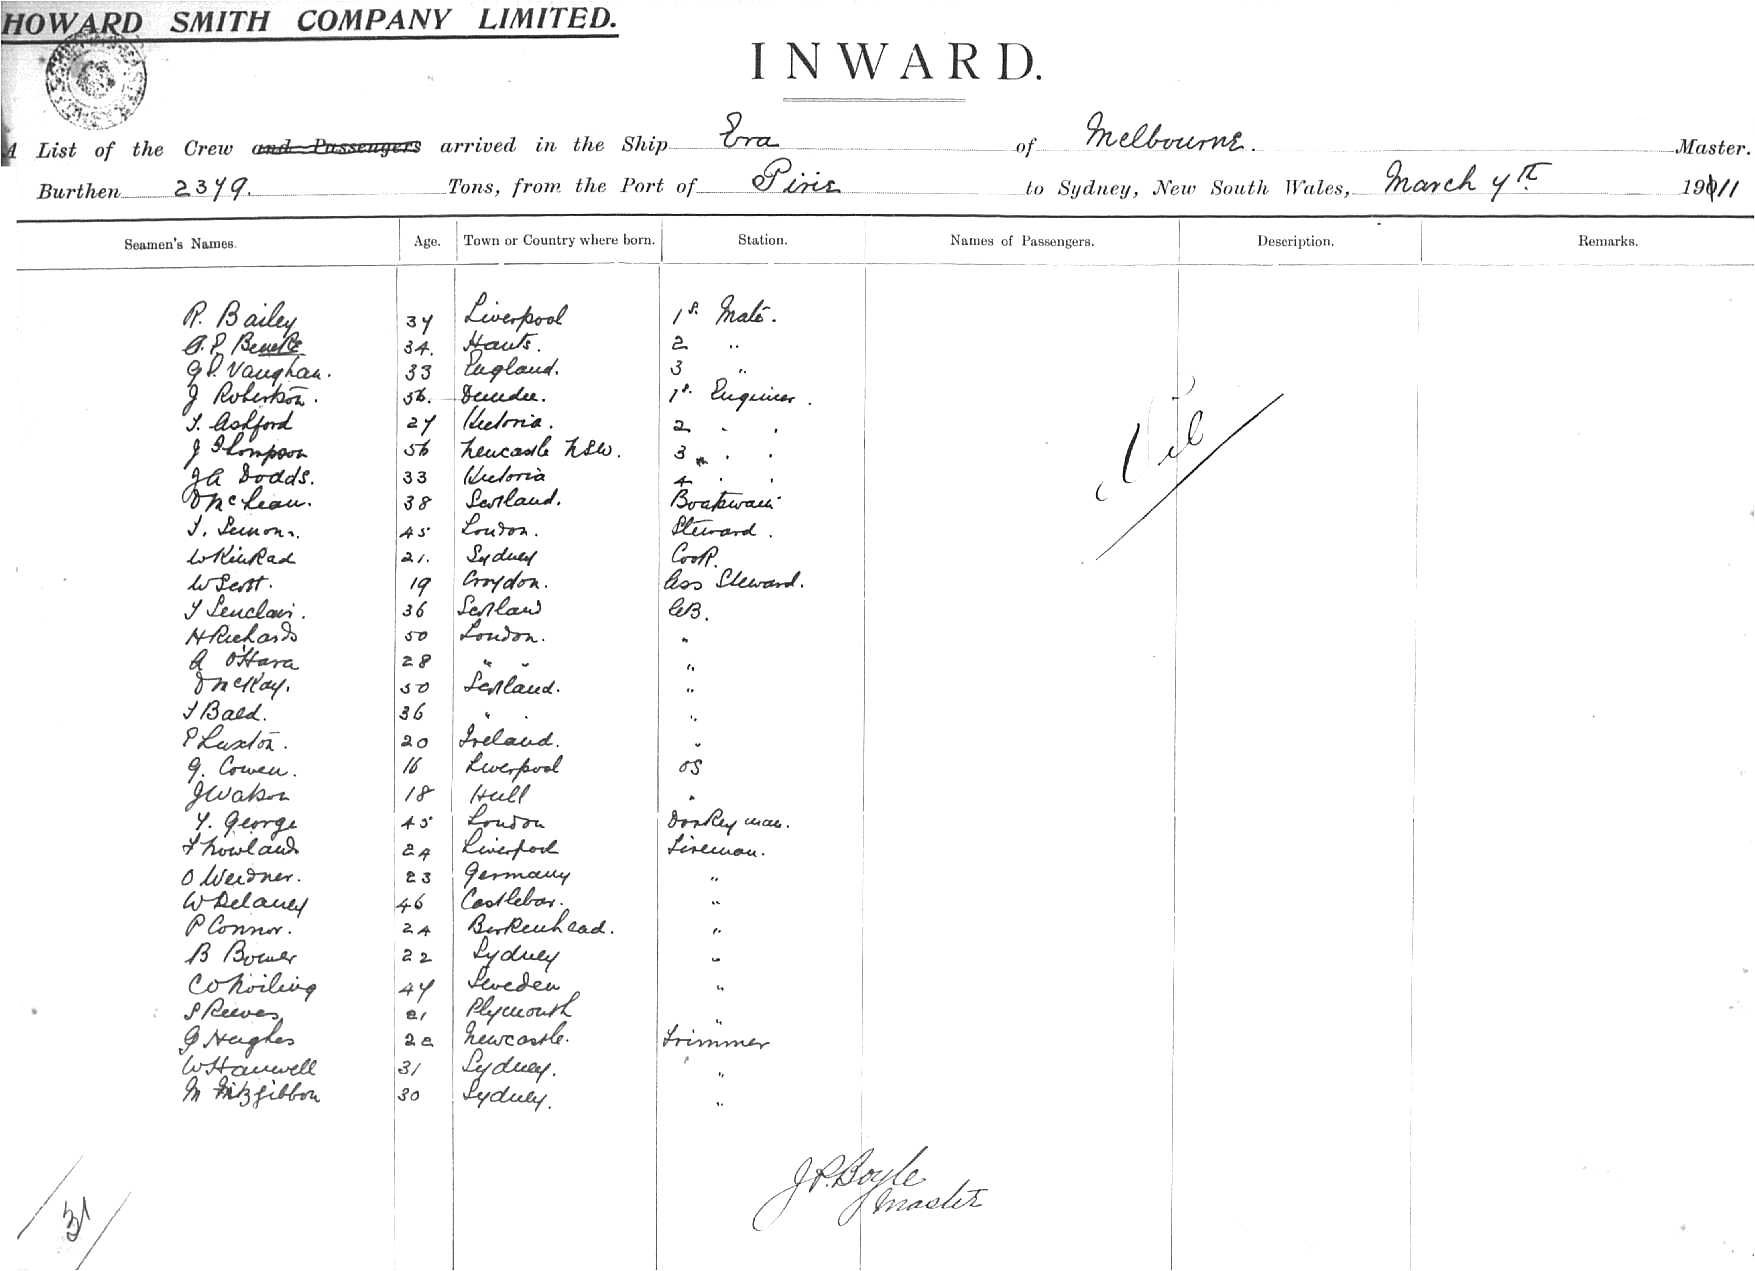 HOWARD SMITH COMPANY LIMITED.
INWARD.
A List of the Crew and Passengers arrived in the Ship Era of Melbourne. Master.
Burthen 2379. Tons, from the Port of Pirie to Sydney, New South Wales, March 7th 1911
Seamen's Names. Age. Town or Country where born. Station. Names of Passengers. Description. Remarks.
R. Bailey 37 Liverpool 1st Mate.
34. Hants. 2 "
G P. Vaughan. 33 England. 3 "
J Robertson. 56. Dundee. 1st Engineer.
T. Ashford 27 Victoria. 2 " "
J Thompson 56 Newcastle NSW. 3 " "
JA Dodds. 33 Victoria 4 " "
D McLean. 38 Scotland. Boatswain
45 London. Steward.
W Kinkad 21. Sydney Cook.
W Scott. 19 Croydon. Ass Steward.
T Senclair. 36 Scotland AB.
H Richards 50 London. "
A O'Hara 28 " " "
D McKay. 50 Scotland. "
J Bald. 36 " " "
P Luxton. 20 Ireland. "
G. Cowen. 16 Liverpool OS
J Watson 18 Hull "
Y. George 45 London Donkeyman.
T Nowland 24 Liverpool Fireman.
O Weidner. 23 Germany "
W Delaney 46 Castlebar. "
P Connor. 24 Birkenhead. "
B Bower 22 Sydney "
C O Noiling 47 Sweden "
S Reeves 21 Plymouth "
G Hughes 22 Newcastle. Trimmer
W Hanwell 31 Sydney. "
M Fitzgibbon 30 Sydney. "
Nil
J P. Boyle
Master
31